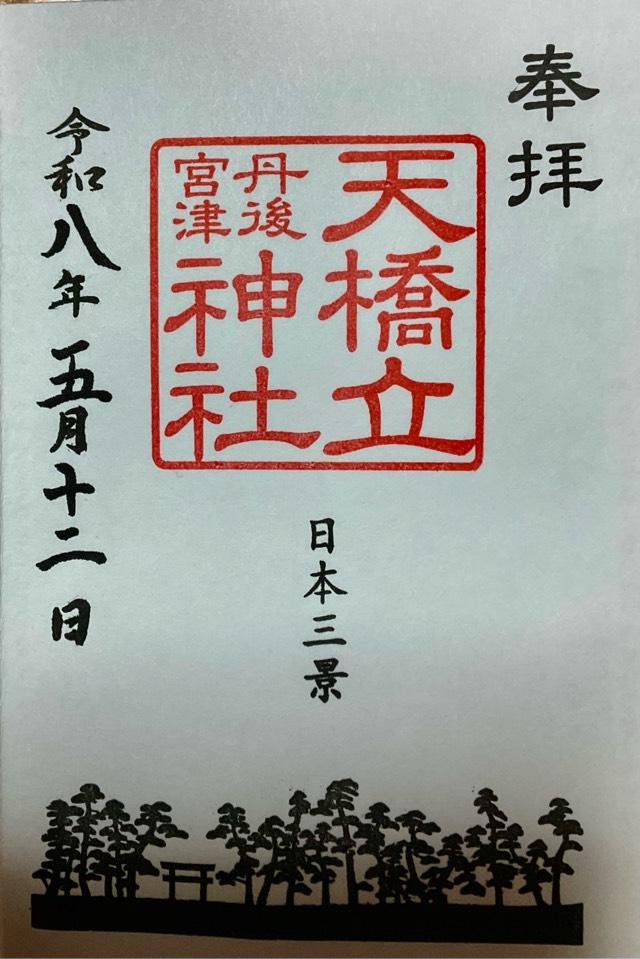 奉拝
天橋立
丹後
宮津
神社
日本三景
令和八年五月十二日